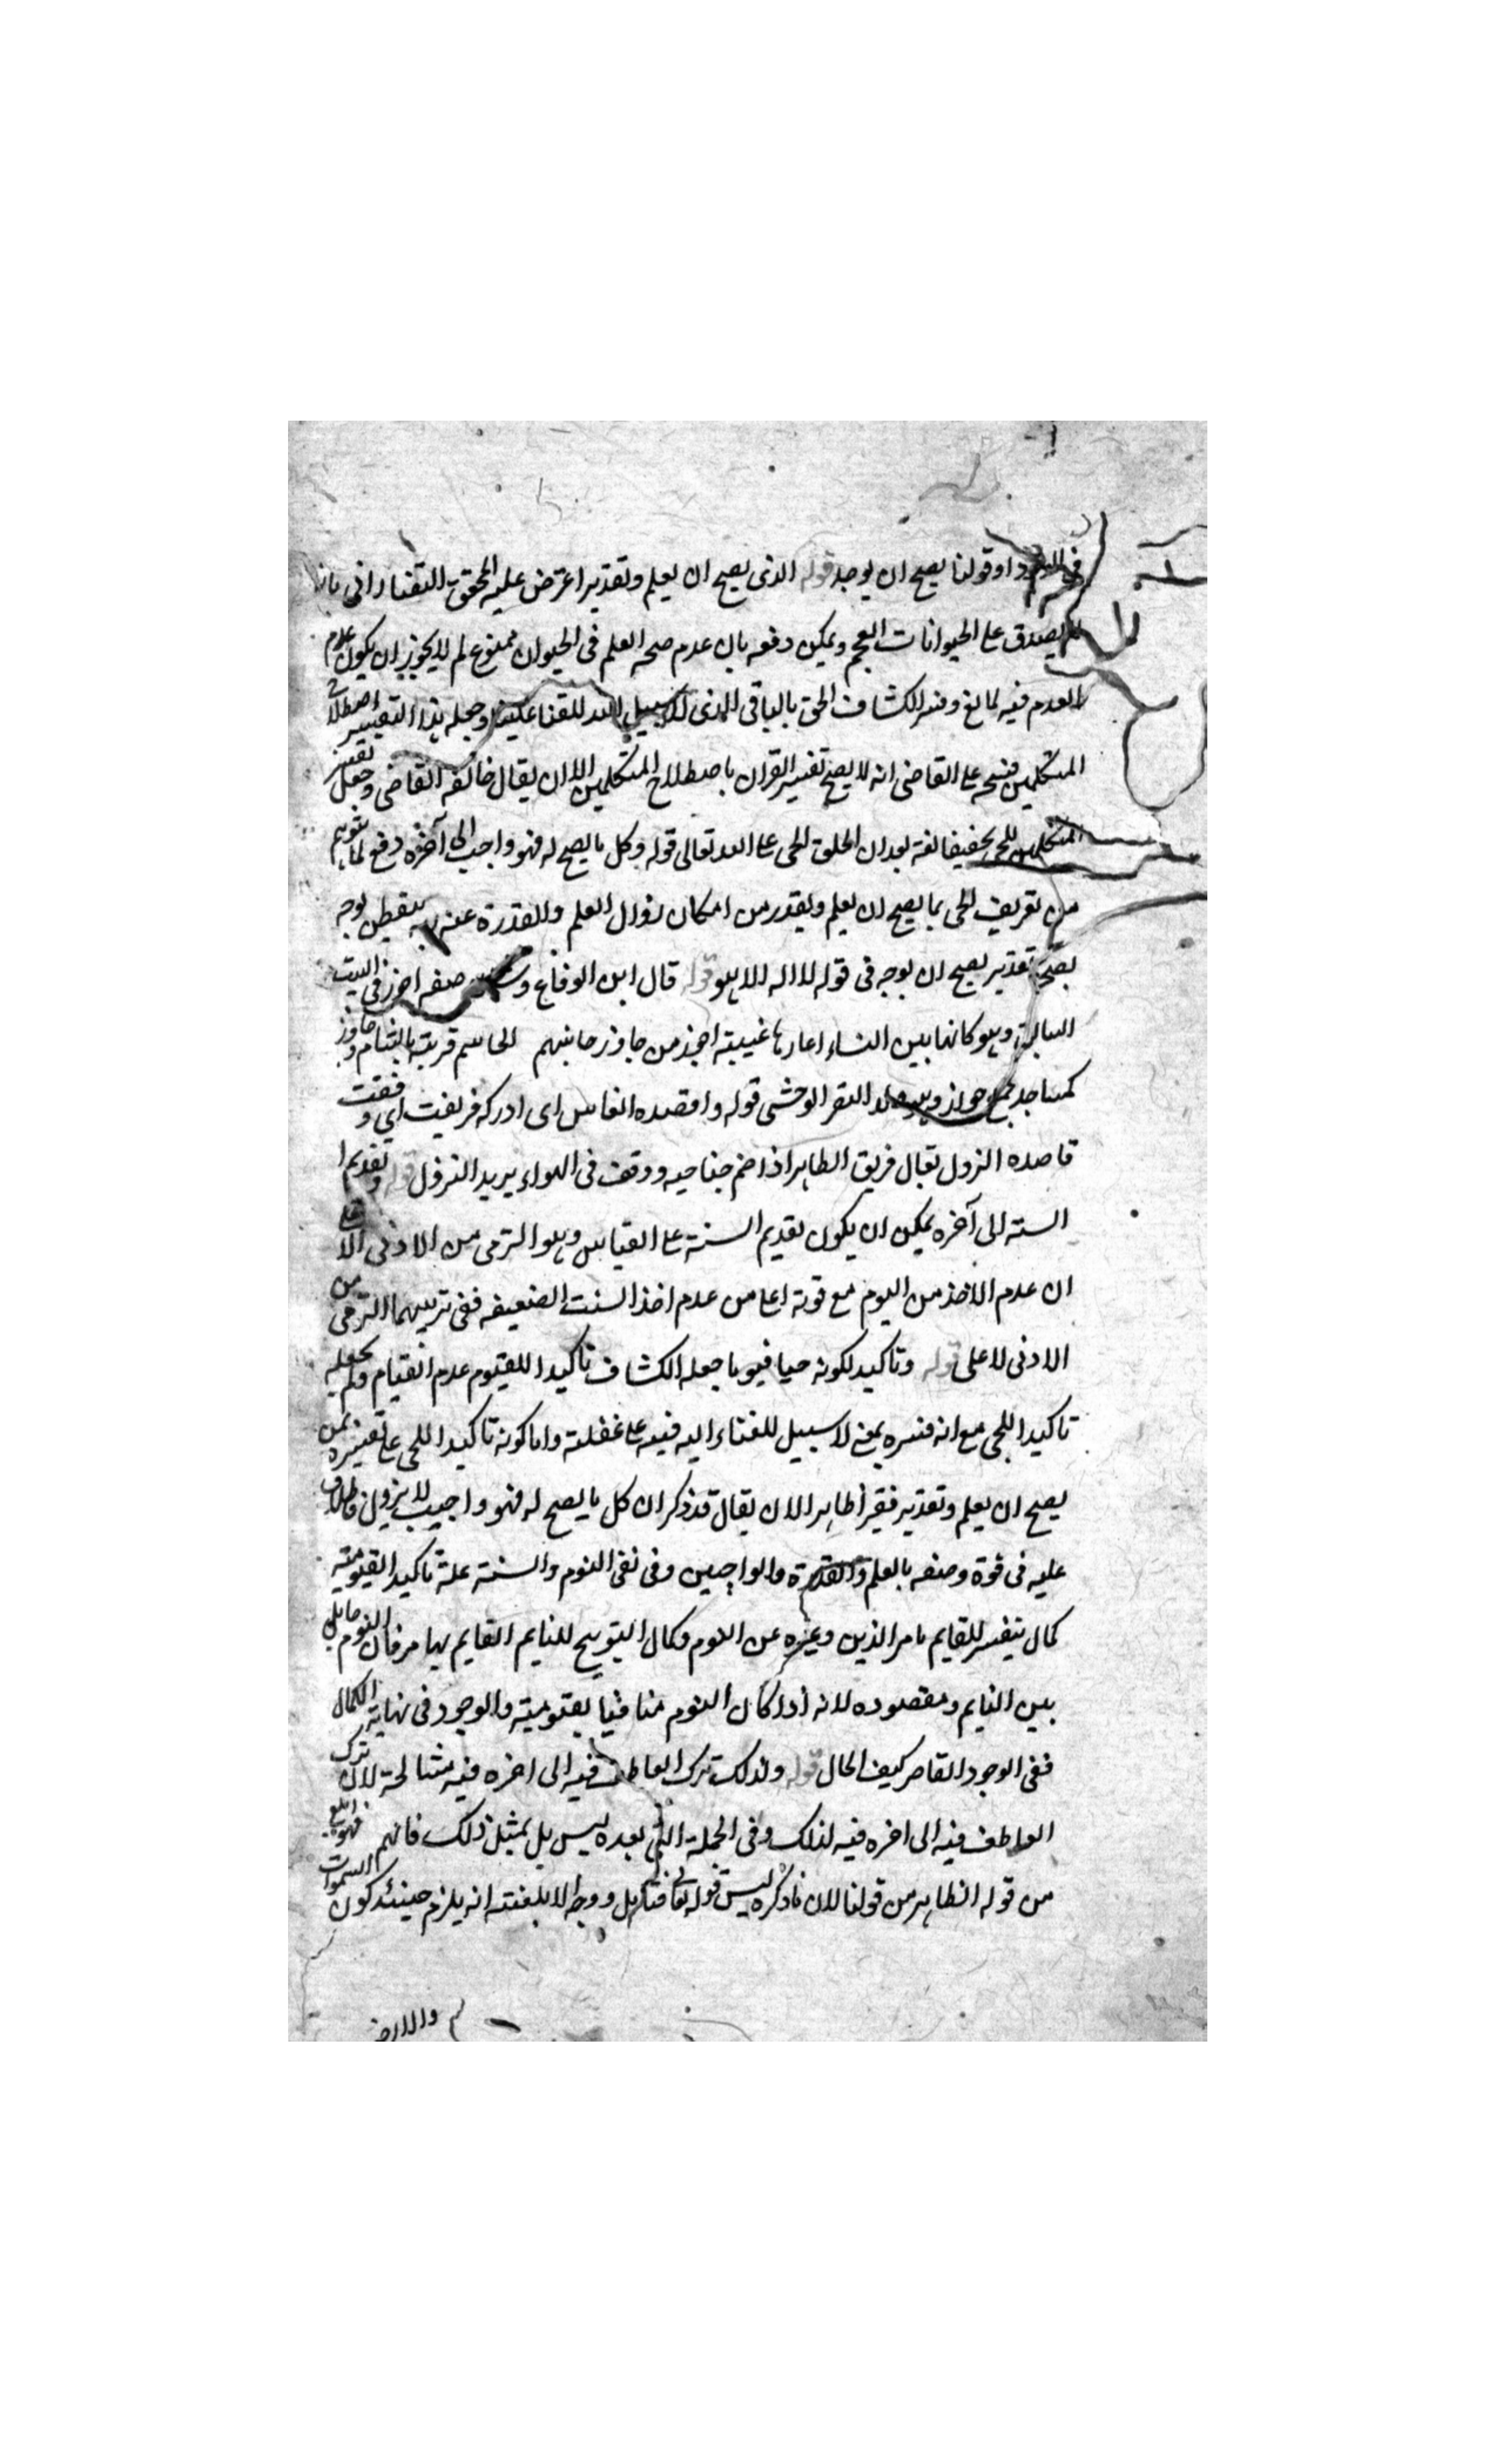 في الوجود او قولنا يصح ان يوجد قوله الذى يصح ان يعلم ويقدير اعترض عليه المحقق التفتازانى بانه
لا يصدق على الحيوانات العجم ويمكن دفعه بان عدم صحه العلم فى الحيوان ممنوع لم لا يجوز ان يكون عدم
العدم فيه لمانع وفسر الكشاف الحى بالباقى الذى لا سبيل للفنا عليه وجعله هذا التفسير اصطلاح
المتكلمين على القاضى انه لا يصح تفسير القران باصطلاح المتكلمين الا ان يقال خالفه القاضى وجعل تفسير
المتكلمين للحى لغة بعد ان اطلق الحى على الله تعالى قوله وكل ما يصح له فهو واجب الى آخره دفع لما يتوهم
من تعريف الحى بما يصح ان يعلم ويقدر من امكان زوال العلم والقدرة عنه
تقدير يصح ان يوجد فى قوله لا اله الا هو قوله قال ابن الرقاع صفه اخرى فى البيت
السابق وهو كانها بين النساء اعارها عينيه احور من جاذر جاسم الجاسم قرية بالشام و جاوز
كمساجد جمع البقر الوحشى قوله واقصده النعاس اى ادركه فرنقت اى وقفت و
قاصده النزول يقال فريق الطاير اذا ضم جناحيه ووقف فى الهواء يريد النزول قوله وتقديم ا
السنه الى آخره يمكن ان يكون تقديم السنة على القياس وهو الترقى من الادنى الى الاعلى
ان عدم الاخذ من النوم مع قوته اعلى من عدم اخذ السنة الضعيفه ففى ترتيبهما الترقى من
الادنى لاعلى قوله وتاكيد لكونه حيا قيوما جعله الكشاف تاكيدا للقيوم عدم القيام ولم يجعله
تاكيدا للحى مع انه فسره بمن لا سبيل للفناء اليه فيه على غفلته واما كونه تاكيدا للحى على تفسيره بمن
يصح ان يعلم ويقدير فغير ظاهر الا ان يقال قد ذكر ان كل ما يصح له فهو واجب لا يزول فاطلاق
عليه فى قوة وصفه بالعلم والقدرة والواجبين وفى نفى النوم والسنة علة تاكيد القيومية
كمال تنفير للقايم بامر الدين وغيره عن النوم وكمال التوبيخ للنايم القايم بها مر فان النوم حايل
بين النايم ومقصوده لانه اذا كان النوم منافيا لقيوميته والوجود فى نهاية الكمال
ففى الوجود القاصر كيف الحال قوله ولذلك ترك العاطف فيه الى اخره فيه مشاحة لان ترك
العاطف فيه الى اخره فيه لذلك وفى الجملة التى بعده ليس بل بمثل ذلك فافهم فهو ابلغ
من قوله الظاهر من قولنا لان ما ذكره ليس قوله تعالى فتامل ووجه الابلغية انه يلزم حينئذ كون السموات
والارض